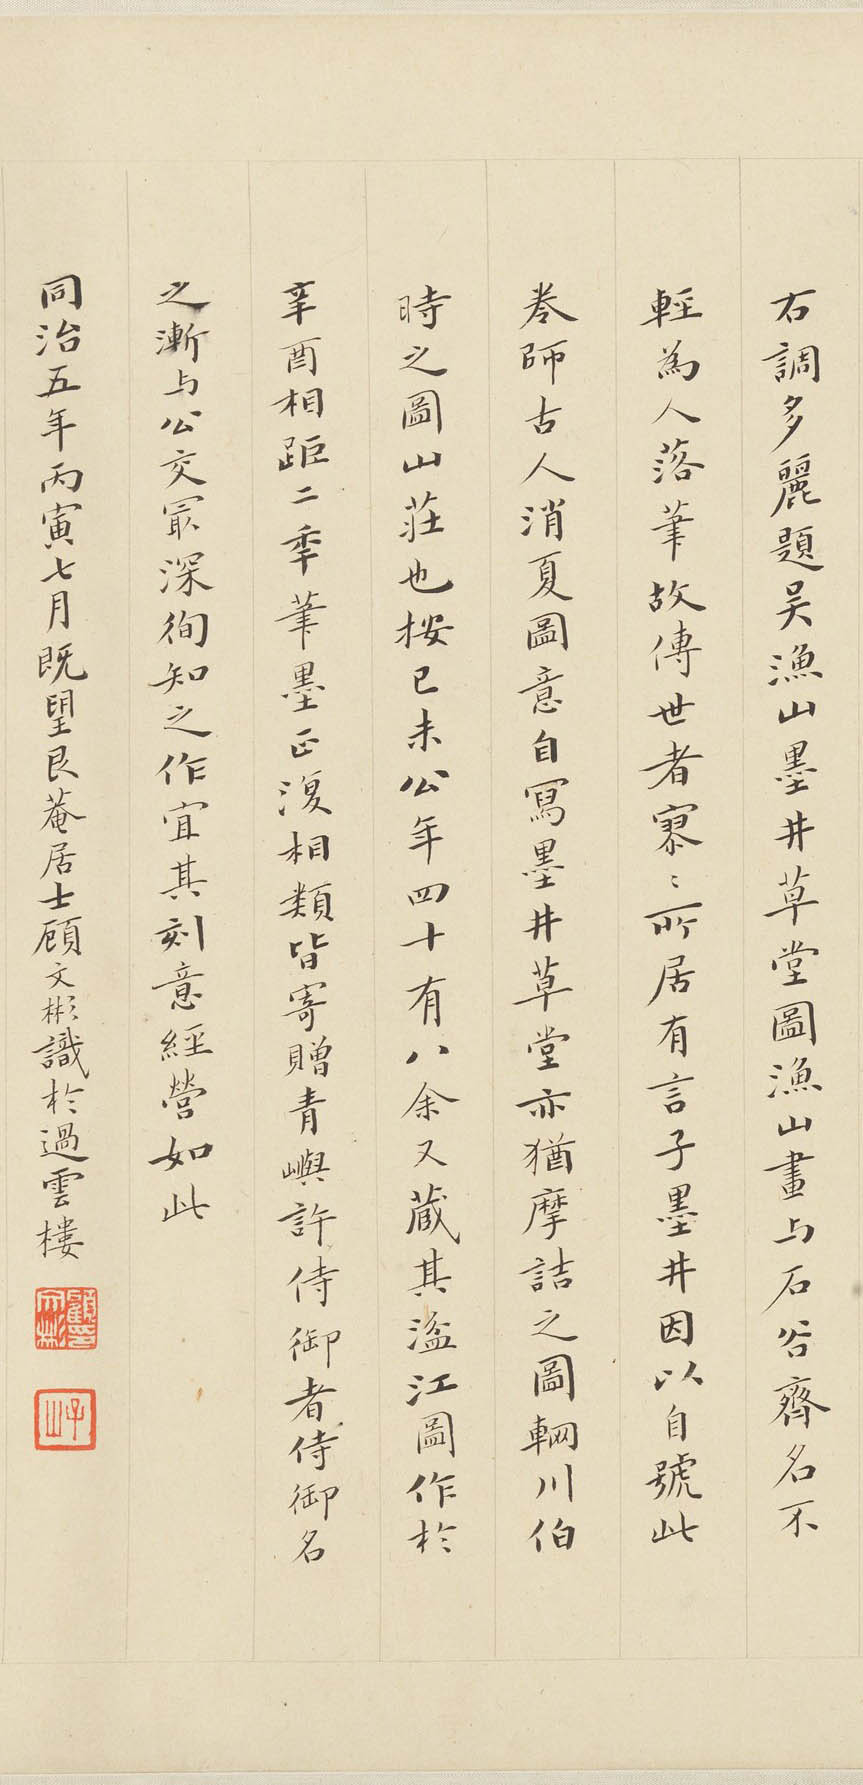 右調多麗題吴漁山墨井草堂圖漁山畫与石谷齊名不
輕為人落筆故傳世者寥〻所居有言子墨井因以自號此
卷師古人消夏圖意自寫墨井草堂亦猶摩詰之圖輞川伯
時之圖山莊也按己未公年四十有八余又藏其湓江圖作於
辛酉相距二季筆墨正復相類皆寄贈青嶼許侍御者侍御名
之漸与公交冣深徇知之作宜其刻意經營如此
同治五年丙寅七月既望艮菴居士顧文彬識於過雲樓
顧文彬
子山